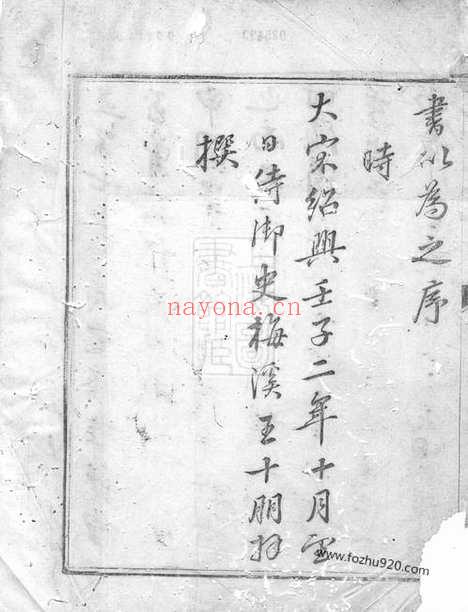 書以為之序
時
大宋紹興壬子二年十月望
日侍御史梅溪王十朋拜
撰
nayona.cn
www.fozhu920.com